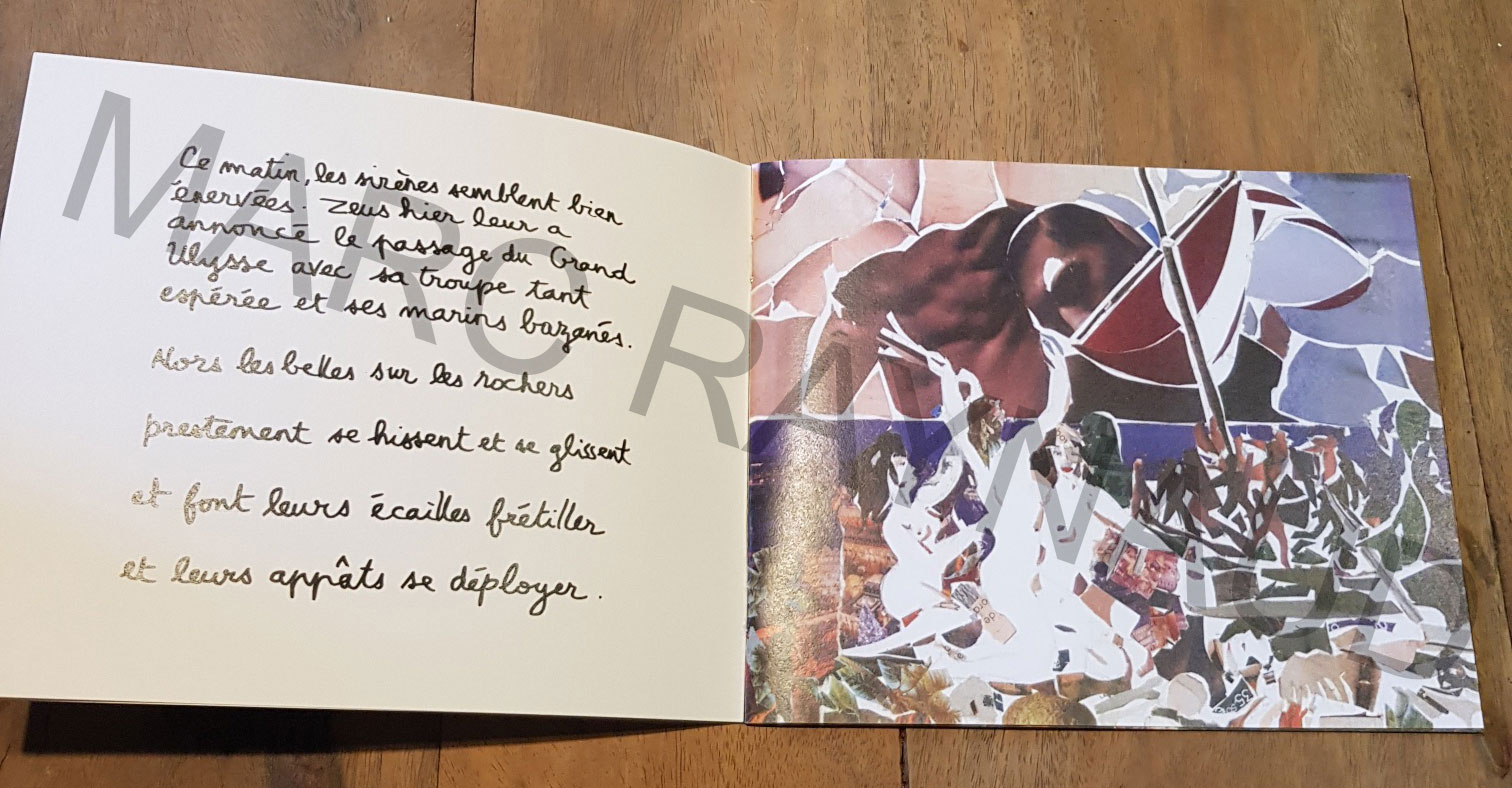 Ce matin, les sirènes semblent bien
énervées. Zeus hier leur a
annoncé le passage du Grand
Ulysse avec sa troupe tant
espérée et ses marins bazanés.
Alors les belles sur les rochers
prestement se hissent et se glissent
et font leurs écailles frétiller
et leurs appâts se déployer.
MARC RAYNAUD